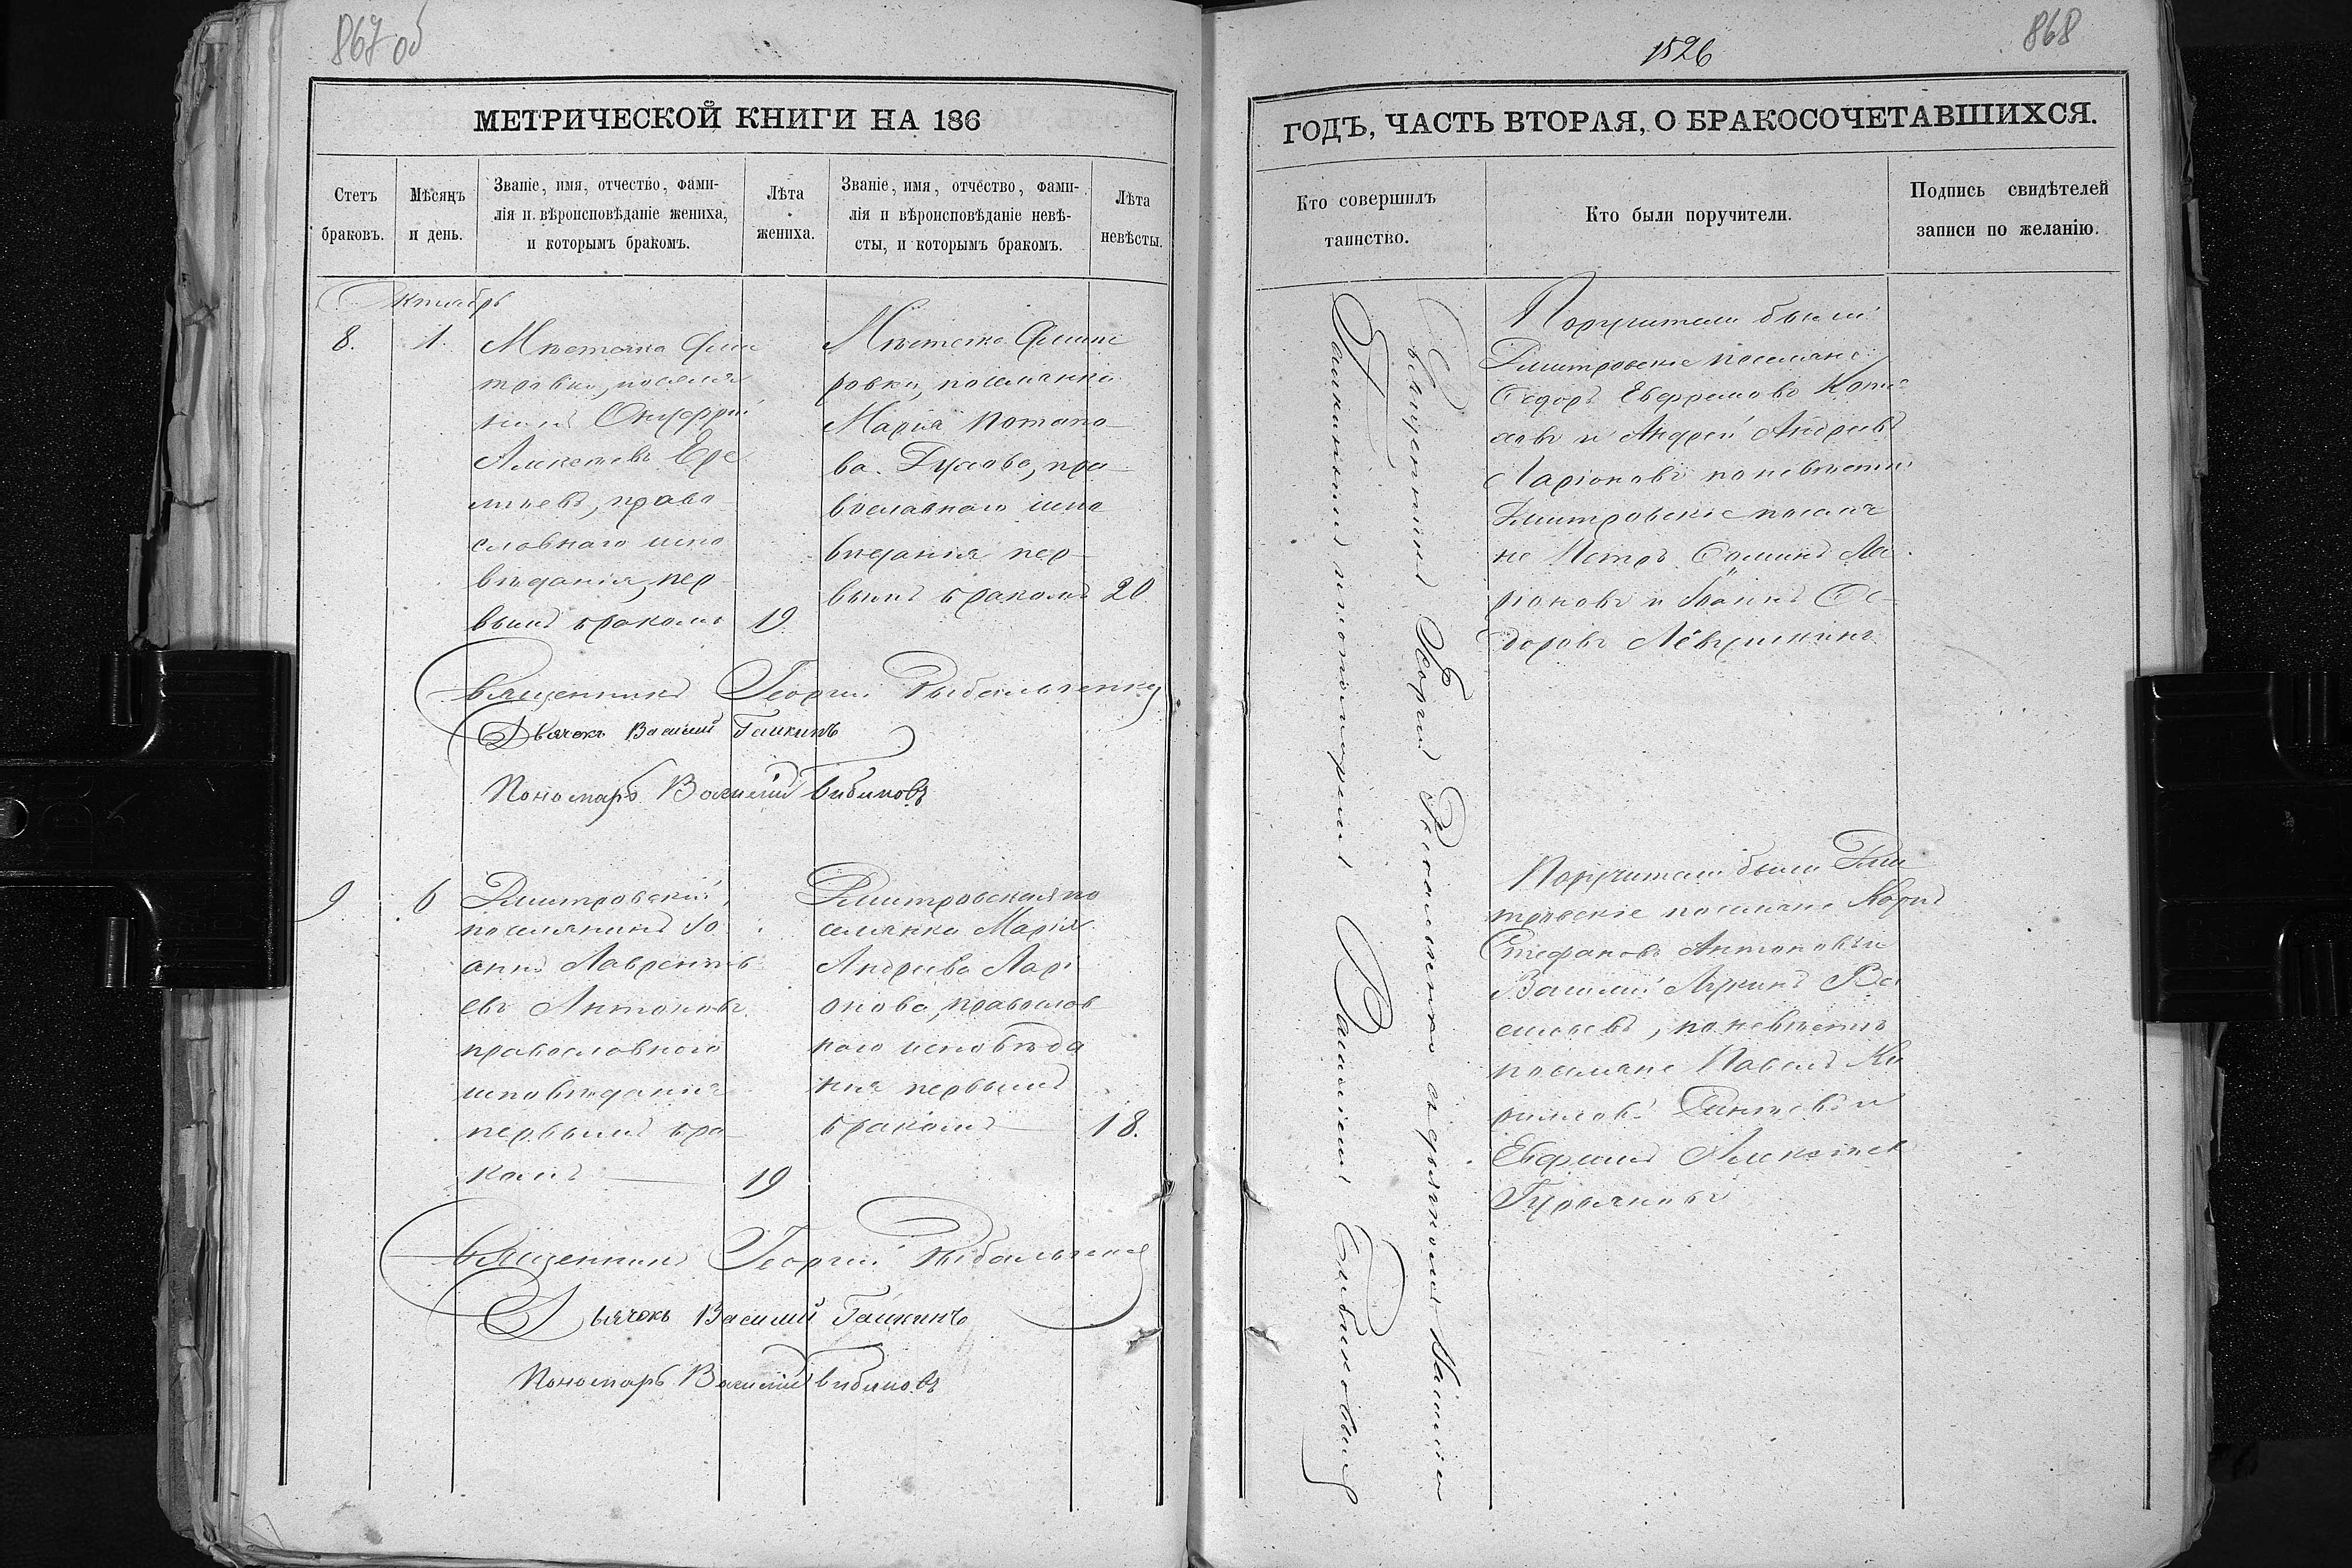 867 об
МЕТРИЧЕСКОЙ КНИГИ НА 186
Счетъ браковъ.
Мѣсяцъ и день.
Званіе, имя, отчество, фами-
лія и вѣроисповѣданіе жениха,
и которымъ бракомъ.
Лѣта жениха.
Званіе, имя, отчество, фами-
лія и вѣроисповѣданіе невѣ-
сты, и которымъ бракомъ.
Лѣта невѣсты.
Октябрь
8.
1.
Мѣстечка
поселя
нинъ Онуфрій
Алексѣевъ Ере
мѣевъ, право
славнаго испо
вѣданія, пер
вымъ бракомъ
19
Мѣстечка
ровки, поселянка
Марія Потапо
ва Гусова, пра
вославнаго испо
вѣданія пер
вымъ бракомъ
20
Священникъ Георгій Рыбальченко
Дьячокъ Василій Галкинъ
Пономарь Василій Бибиковъ
9
6
Дмитровскій
поселянинъ Іо
аннъ Лаврентьʼ
евъ Антоновъ
православнаго
исповѣданія
первымъ бра
комъ
19
Дмитровская по
селянка Марія
Андреева Лари
онова, православ
наго исповѣда
нія первымъ
бракомъ
18.
Священникъ Георгій Рыбальченко
Дьячокъ Василій Галкинъ
Пономарь Василій Бибиковъ
1526
868
ГОДЪ, ЧАСТЬ ВТОРАЯ, О БРАКОСОЧЕТАВШИХСЯ.
Кто совершилъ
таинство.
Кто были поручители.
Подпись свидѣтелей
записи по желанію.
Священникъ Георгій Рыбальченко съ дьячкомъ Василіем
Галкинымъ и пономаремъ Василіем Бибиковымъ
Поручители были
Дмитровскіе поселяне
Ѳедоръ Евфремовъ
и Андрей Андреевъ
Ларіоновъ по невѣстѣ
Дмитровскіе поселя
не Петръ Ѳоминъ Ла
ріоновъ и Іоаннъ Ѳе
доровъ Лёвушкинъ
Поручители были Дми
тровскіе поселяне
Стефановъ Антоновъ и
Василій Лукинъ Ва
сильевъ, по невѣстѣ
поселяне Павелъ Ки
рилловъ и
Евфимъ Алексѣев
Гурьяновъ